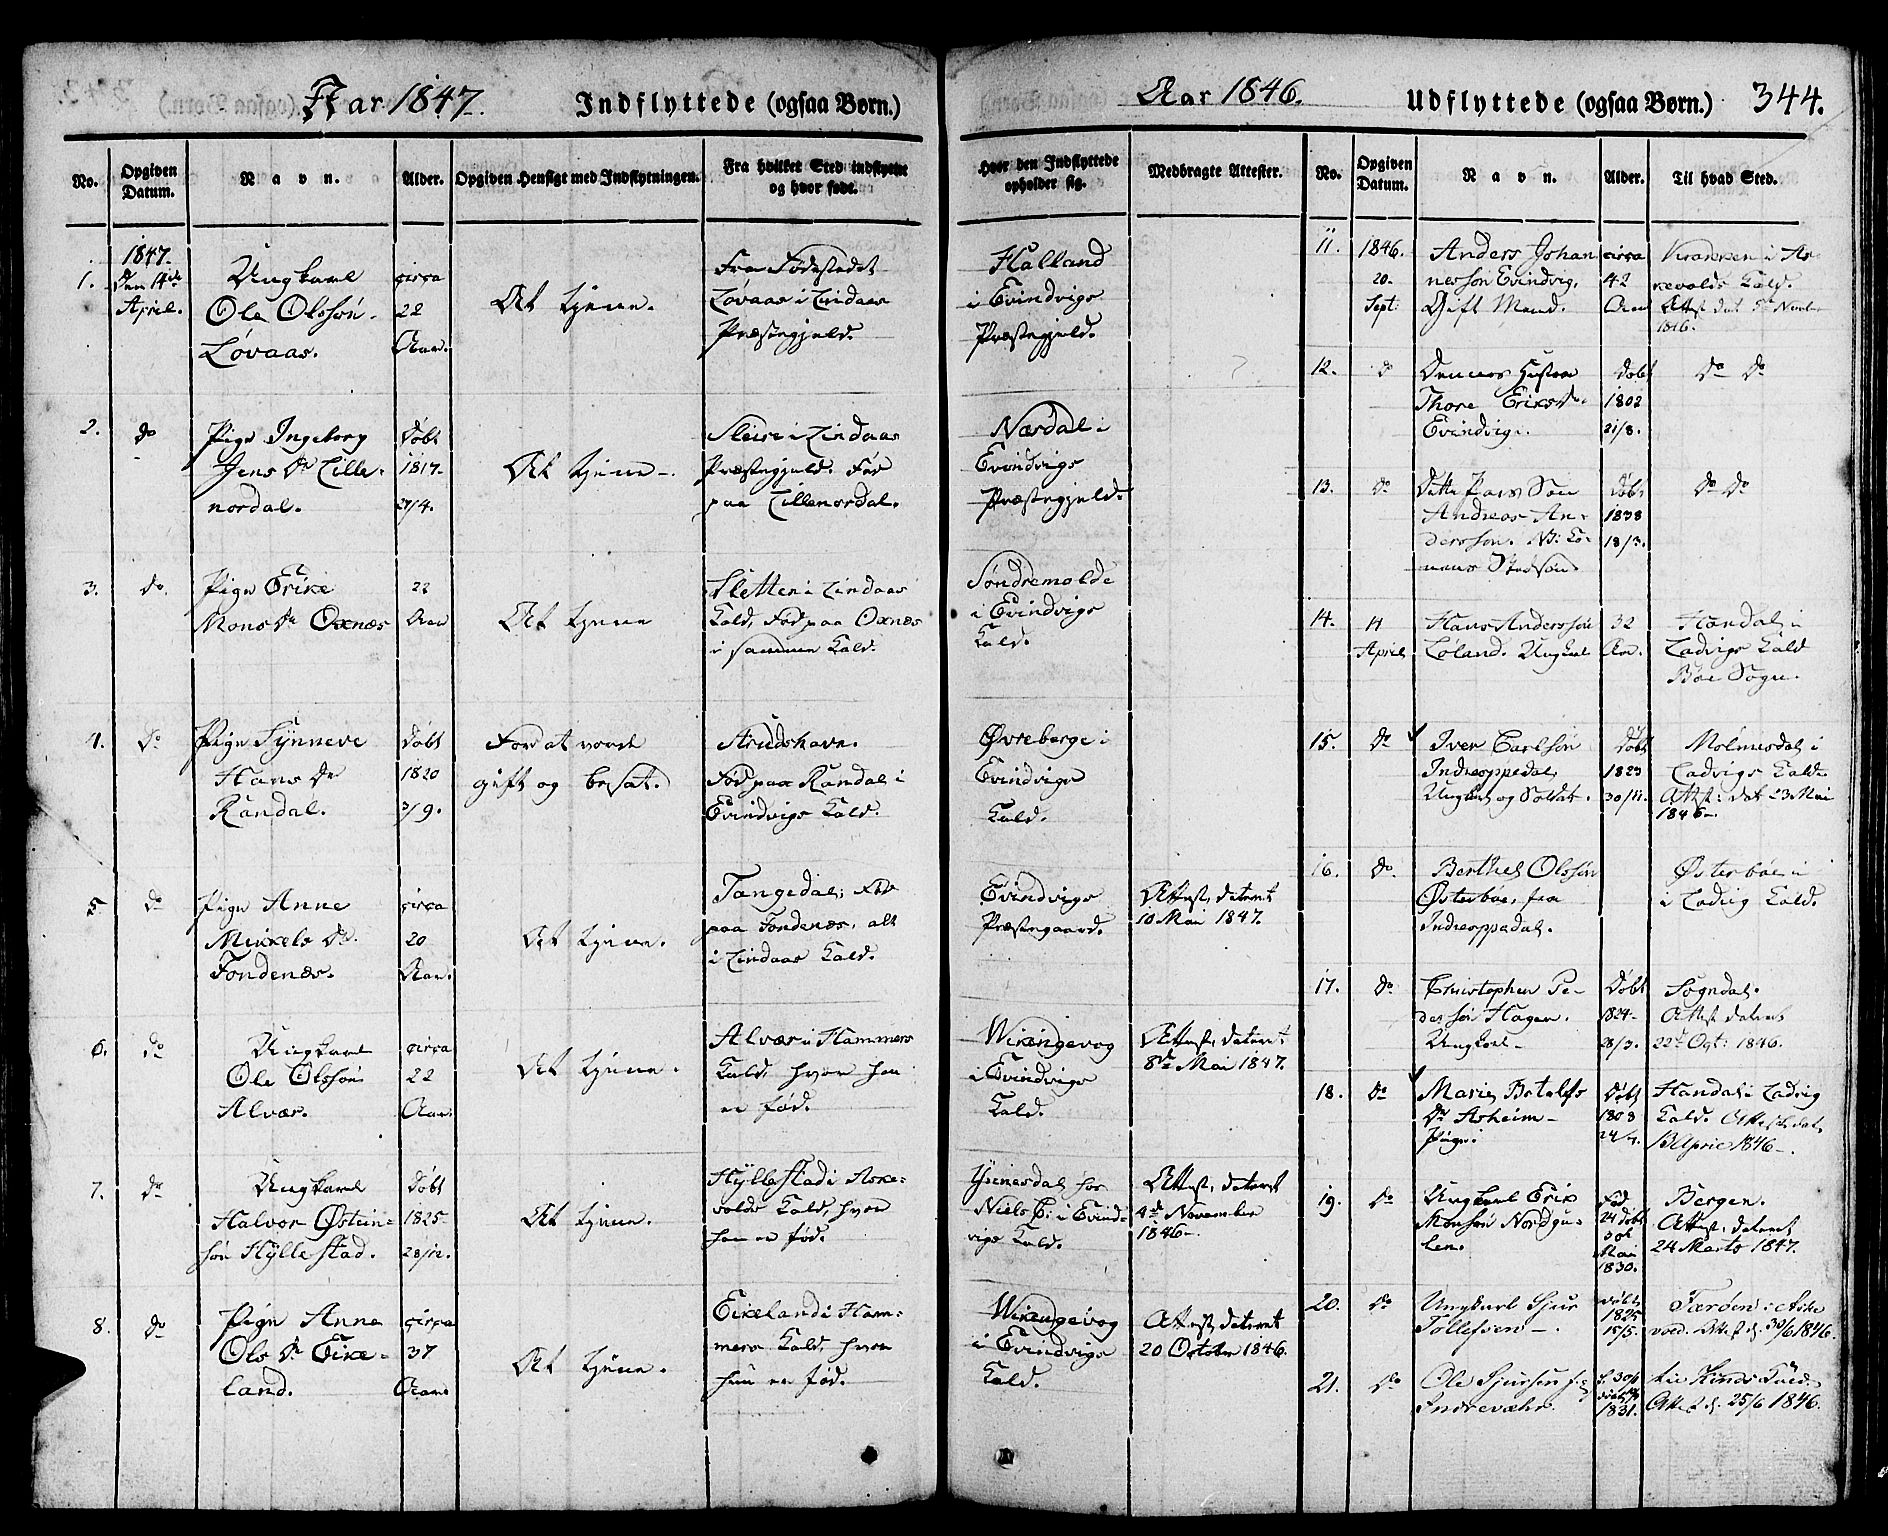 Aar 1847. Indflyttede (ogsaa Børn.)
No.
Opgiven Datum.
Navn.
Alder.
Opgiven Hensigt med Indflytningen.
Fra hvilket Sted indflyttet og hvor født.
Hvor den Indflyttede opholder sig.
Medbragte Attester.
1.
1847.
Den 14de
April.
Ungkarl
Ole Olssøn
Løvaas.
circa
22
Aar.
At tjene.
Fra Fødestedet
Løvaas i Lindaas
Præstegjeld.
Halland
i Evindvigs
Præstegjeld.
2.
Do
Pige Ingeborg
Jens Dr Lille-
nordal.
Døbt
1817.
27/4.
At tjene.
i Lindaas
Præstegjeld. Før
paa Lillenordal.
Næsdal i
Evindvigs
Præstegjeld.
3.
Do.
Pige Erike
Mons Dr Oxnæs
22
Aar
At tjene
Sletten i Lindaas
Kald, Fød paa Oxnæs
i samme Kald.
Søndremolde
i Evindvigs
Kald.
4.
Do
Pige Synneve
Hans Dr
Randal.
Døbt
1820
3/9.
For at vorde
gift og besat.
Fød paa Randal i
Evindvigs Kald.
Øvreberge i
Evindvigs
Kald.
5.
Do
Pige Anne
Mikkels Dr
Fondenæs.
circa
20
Aar.
At tjene.
Tangedal, Fød
paa Fondenæs, alt
i Lindaas Kald.
Evindvigs
Præstegaard.
Attest, dateret
10 Mai 1847.
6.
Do
Ungkarl
Ole Olssøn
Alvær.
circa
22
Aar.
At tjene.
Alvær i Hammers
Kald, hvor han
er fød.
Wirengevog
i Evindvigs
Kald.
Attest, dateret
8de Mai 1847.
7.
Do
Ungkarl
Halvor Østein-
søn Hyllestad.
Døbt
1825-
28/12.
At tjene.
Hyllestad i Aske-
volds Kald, hvor
han er fød.
hos
Niels i Evind-
vigs Kald.
Attest, dateret
4de November
1846-
8.
Do
Pige Anne
Ols Dr Eike-
land.
circa
37
Aar
At tjene.
Eikeland i Ham-
mers Kald, hvor
hun er fød.
Wirengevog
i Evindvigs
Kald.
Attest, dateret
20 October 1846.
Aar 1846. Udflyttede (ogsaa Børn.) 344.
No.
Opgiven Datum.
Navn.
Alder.
Til hvad Sted.
11.
1846.
20-
Sept:
Anders Johan
nessøn Evindvig,
Gift Mand.
circa
42
Aar
i As-
kevolds Kald.
1846.
12.
Do
Dennes Hustru
Thore Eriks Dr
Evindvig.
Døbt
1802
21/8.
Do Do
13.
Do
Dette Pars Søn
Andreas An-
derssøn. NB: Ko-
nens Stedsøn
Døbt
1838
18/3.
Do Do
14.
14
April
Hans Anderssøn
Løland. Ungkarl
32
Aar.
Handal i
Ladvigs Kald
Bøe Sogn.
15.
Do
Iver Carlsøn
Indreoppedal,
Ungkarl og Soldat.
Døbt
1823
30/11.
Molmesdal i
Ladvigs Kald.
Att: dat 23 Mai
1846-
16.
Do.
Berthel Olssøn
Østerbøe, fra
Indreoppedal.
Østerbøe i
i Ladvig Kald.
17.
Do
Christopher Pe-
derssøn Hagen.
Ungkarl-
Døbt
1824-
28/3.
Sogndal.
Attest dateret
22de Oct: 1846.
18.
Do
Marie Botolfs
Dr Asheim-
Pige.
Døbt
1803
24/4.
Handal i Ladvig
Kald. Attest dat.
April 1846-.
19.
Do
Ungkarl Erik
Monssøn Nordgu-
len.
Fød
24 døbt
30t
Mai
1830.
Bergen.
Attest, dateret
24 Marts 1847.
20.
Do
Ungkarl Sjur
Tollefsen-.
Døbt
1825
15/5.
Tærøen i Aske
vold. Attest d. 30/6 1846.
21.
Do
Ole Sjursen
Indrevæhr.
1831.
til Kinds
Attest d. 25/6 1846.